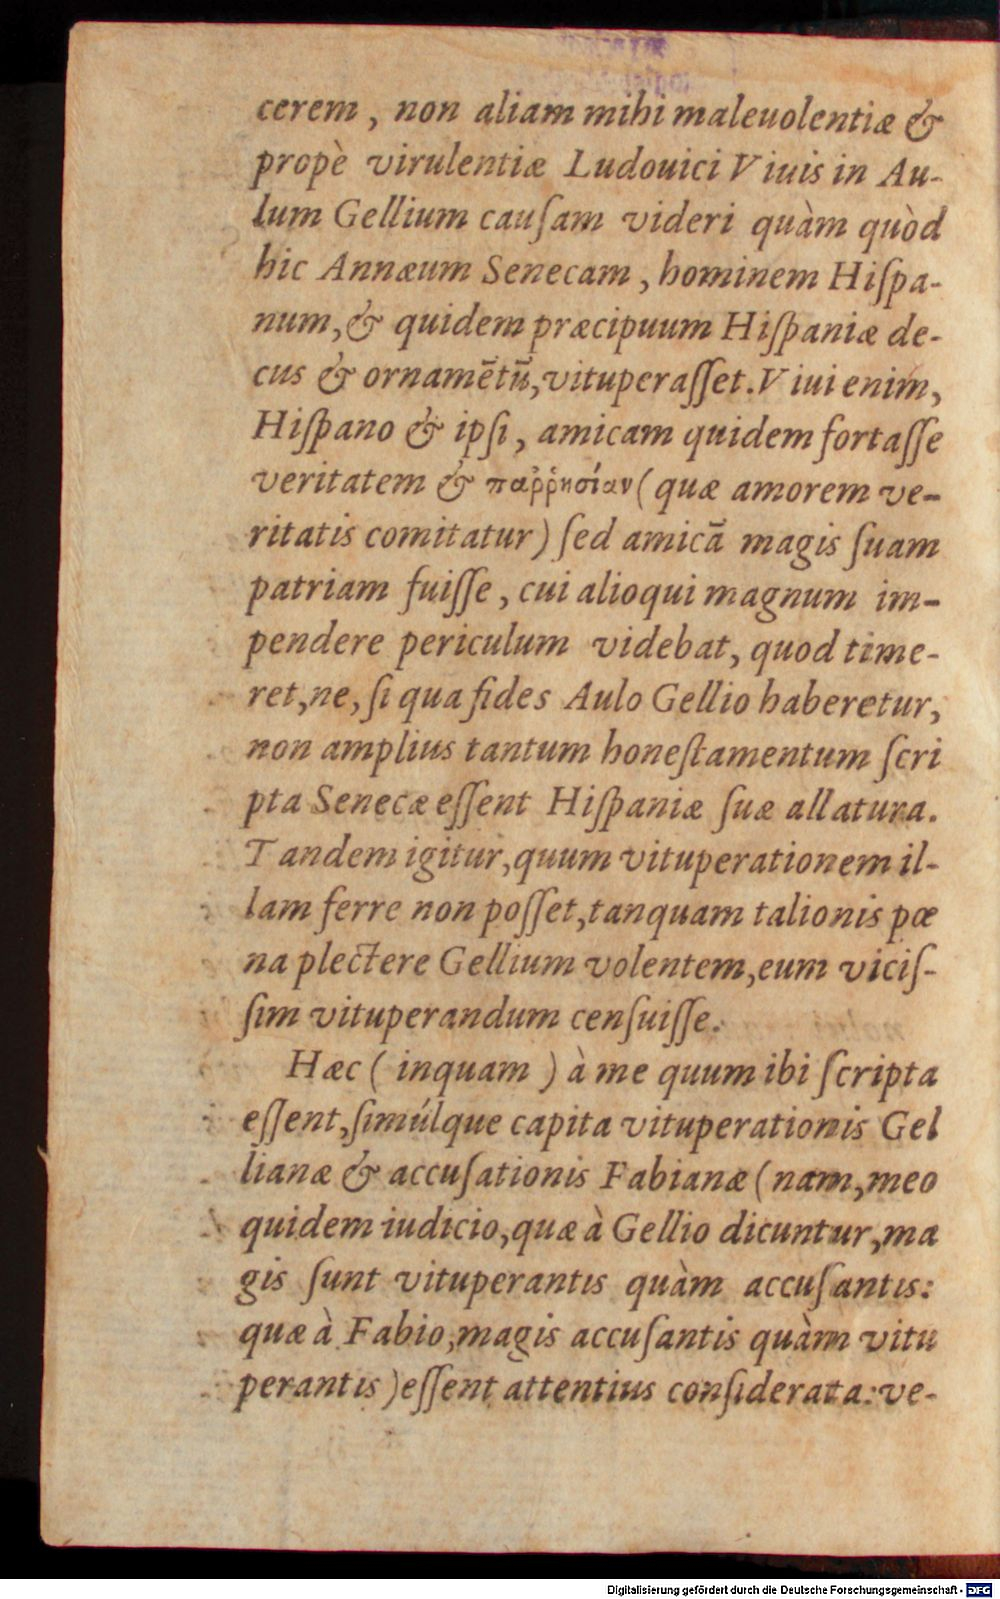 cerem, non aliam mihi maleuolentiæ &
propè virulentiæ Ludouici Viuis in Au-
lum Gellium cauſam videri quàm quòd
hic Annæum Senecam, hominem Hiſpa-
num, & quidem præcipuum Hiſpaniæ de-
cus & ornamētū, vituperaſſet. Viui enim,
Hiſpano & ipſi, amicam quidem fortaſſe
veritatem & παῤῥησίαν (quæ amorem ve-
ritatis comitatur) ſed amicā magis ſuam
patriam fuiſſe, cui alioqui magnum im-
pendere periculum videbat, quod time-
ret, ne, ſi qua fides Aulo Gellio haberetur,
non amplius tantum honeſtamentum ſcri
pta Senecæ eſſent Hiſpaniæ ſuæ allatura.
Tandem igitur, quum vituperationem il-
lam ferre non poſſet, tanquam talionis pœ
na plectere Gellium volentem, eum viciſ-
ſim vituperandum cenſuiſſe.
Hæc (inquam) à me quum ibi ſcripta
eſſent, ſimúlque capita vituperationis Gel
lianæ & accuſationis Fabianæ (nam, meo
quidem iudicio, quæ à Gellio dicuntur, ma
gis ſunt vituperantis quàm accuſantis:
quæ à Fabio, magis accuſantis quàm vitu
perantis) eſſent attentius conſiderata: ve-
Digitalisierung gefördert durch die Deutsche Forschungsgemeinschaft - DFG